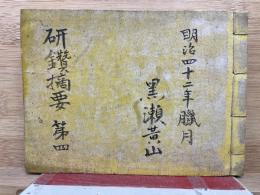 明治四十二年臘月
黒瀬黄山
研鑽摘要 第四